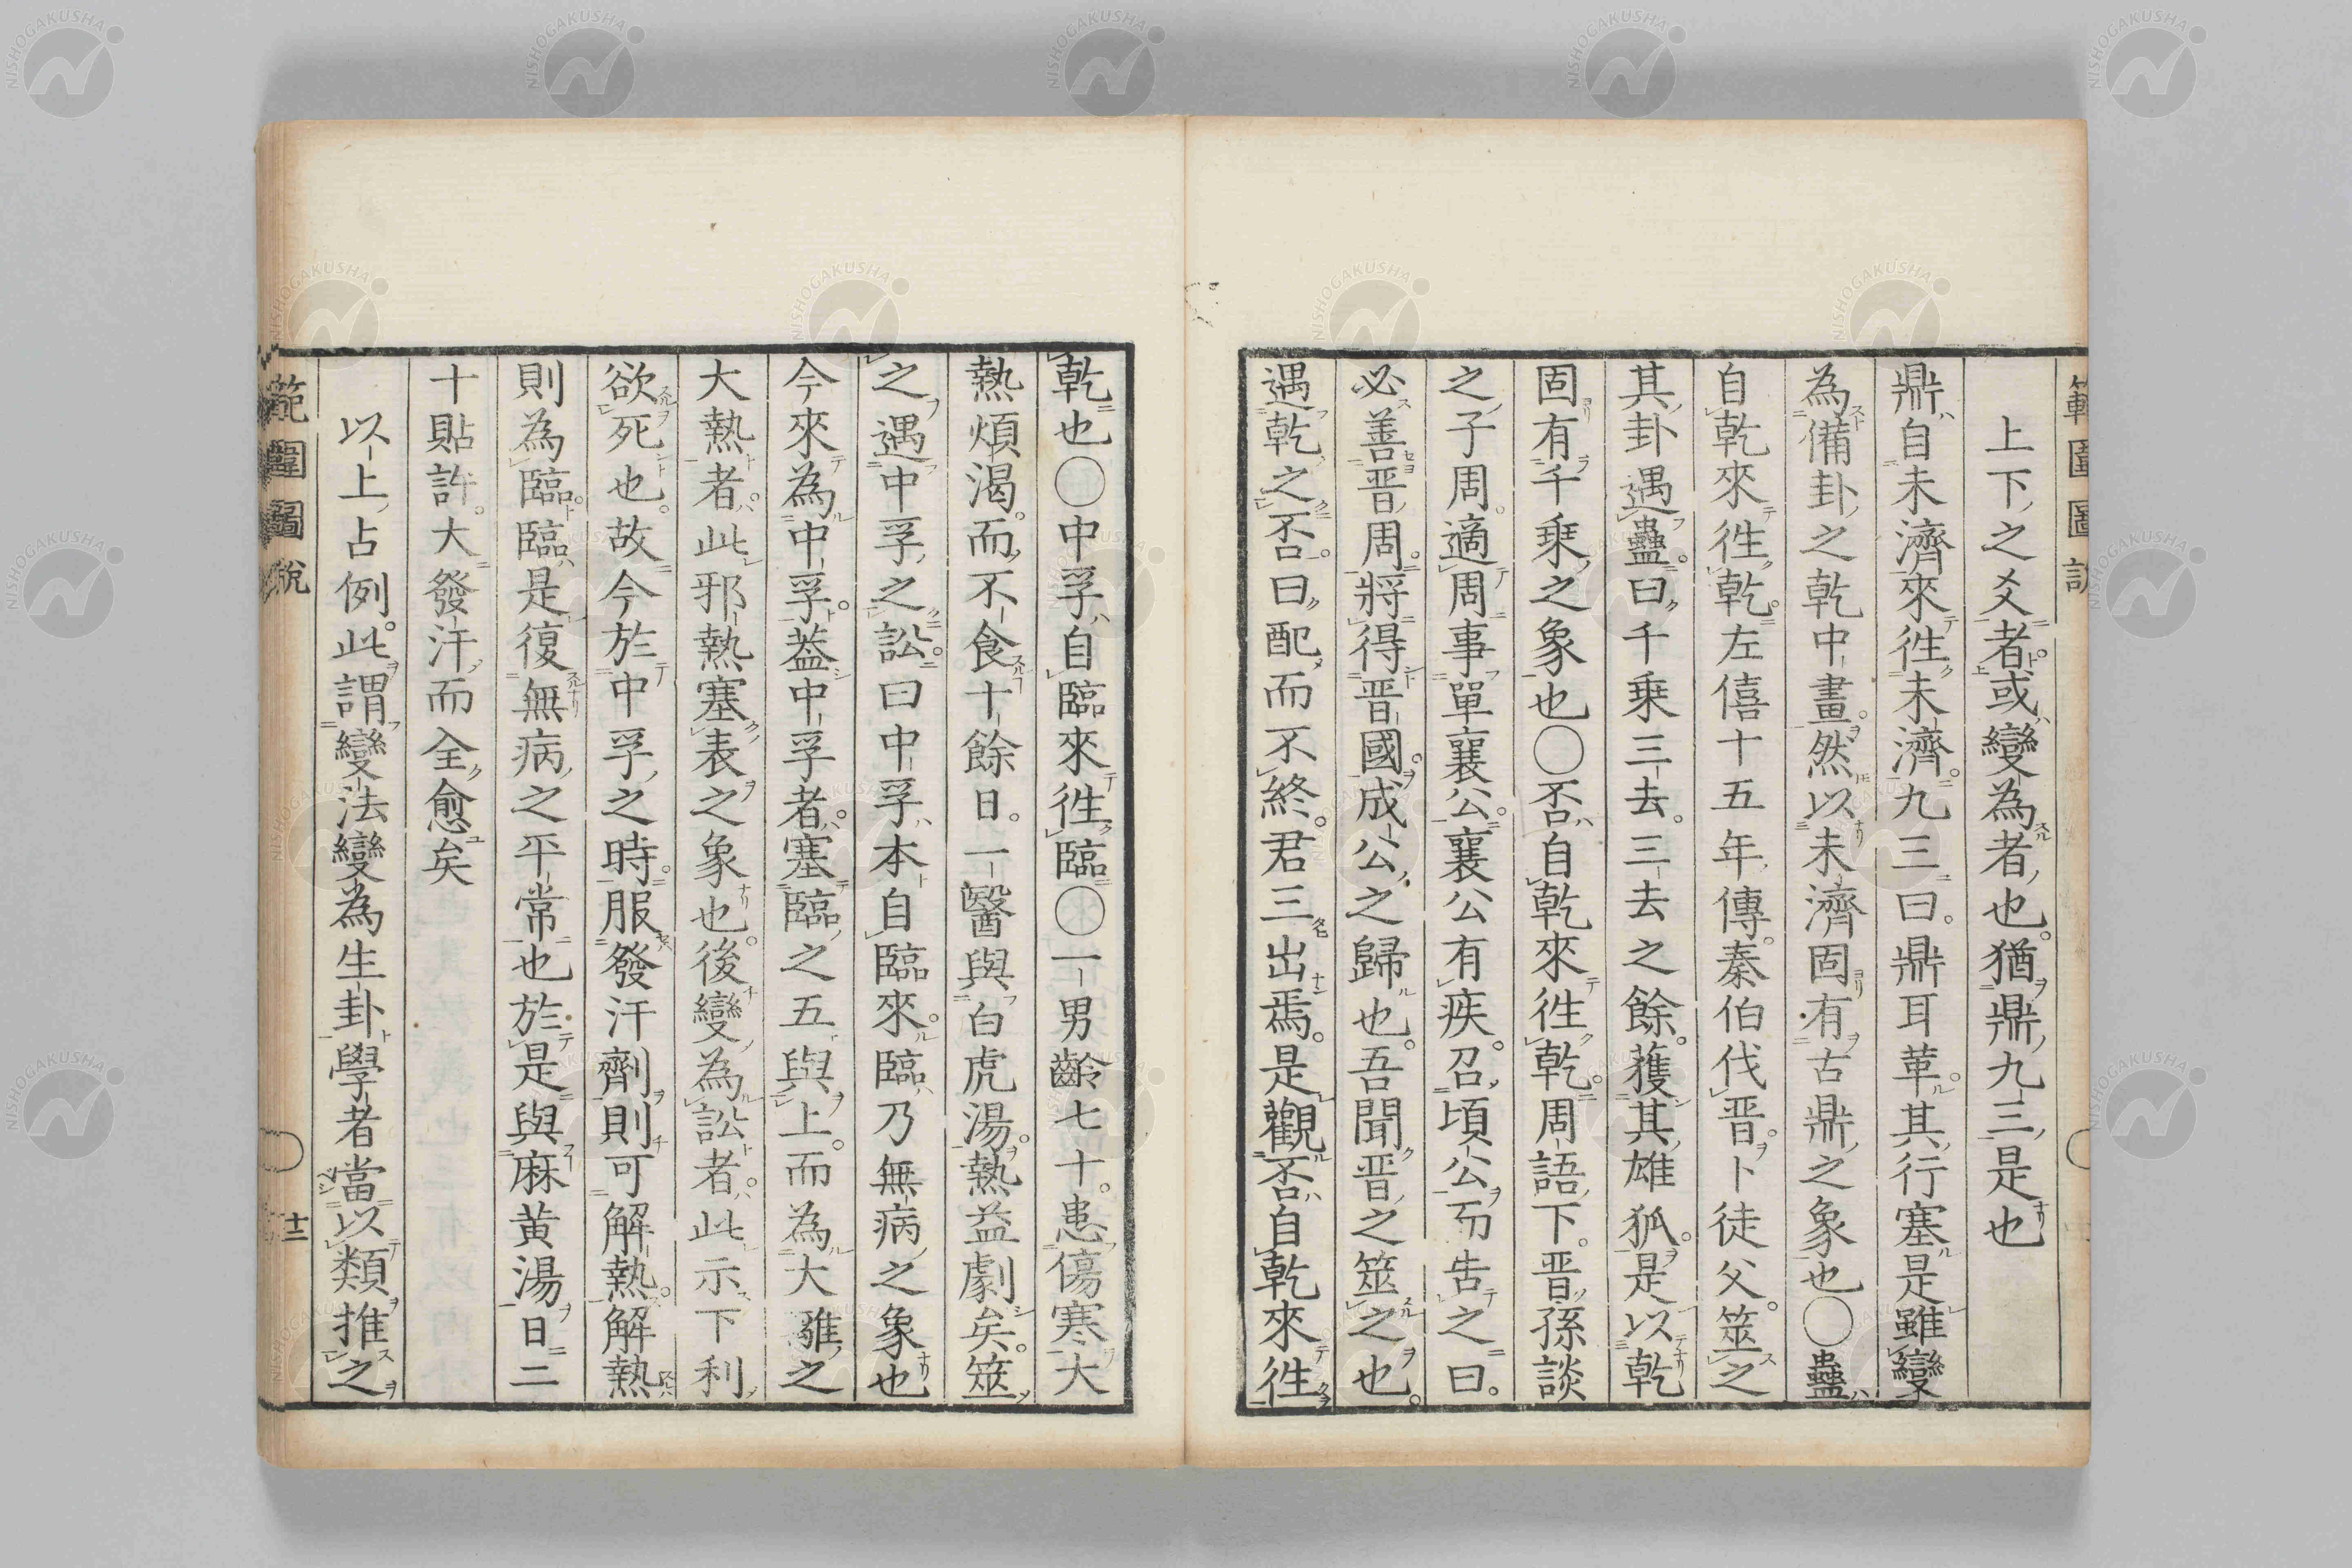 範圍圖說
上下之爻者或變為者也猶鼎九三是也
鼎自未濟來徃未濟九三曰鼎耳革其行塞是雖變
為備卦之乾中畫然以未濟固有古鼎之象也○蠱
自乾來徃乾左僖十五年傳秦伯伐晋卜徒父筮之
其卦遇蠱曰千乗三去三去之餘獲其雄狐是以乾
固有千乗之象也○否自乾來徃乾周語下晋孫談
之子周適周事單襄公襄公有疾召頃公而告之曰
必善晋周將得晋國成公之歸也吾聞晋之筮之也
遇乾之否曰配而不終君三出焉是觀否自乾來徃
乾也○中孚自臨來徃臨○一男齡七十患傷寒大
熱煩渴而不食十餘日一醫與白虎湯熱益劇矣筮
之遇中孚之訟曰中孚本自臨來臨乃無病之象也
今來為中孚葢中孚者塞臨之五與上而為大離之
大熱者此邪熱塞表之象也後變為訟者此示下利
欲死也故今於中孚之時服發汗劑則可解熱解熱
則為臨臨是復無病之平常也於是與麻黄湯日二
十貼許大發汗而全愈矣
以上占例此謂變法變為生卦學者當以類推之
範圍圖說
十二
NISHOGAKUSHA